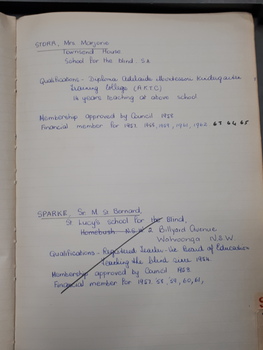 STORR, Mrs Marjorie
Townsend House
School for the blind. S.A
Qualifications - Diploma Adelaide Kindergarten
Training College (A.K.T.C)
14 years teaching at above school
Membership approved by Council 1958
Financial member for 1957, 1958, 1959, 1961, 1962 63 64 65
SPARKE, Sr. M. St Bernard
St. Lucy's school for the Blind,
Homebush N.S.W. 2 Billyard Avenue
Wahroonga N.S.W.
Qualifications - Registered Teacher - Board of Education
Teaching the blind since 1954.
Membership approved by Council 1959
Financial member for 1957. 58, 59, 60, 61,